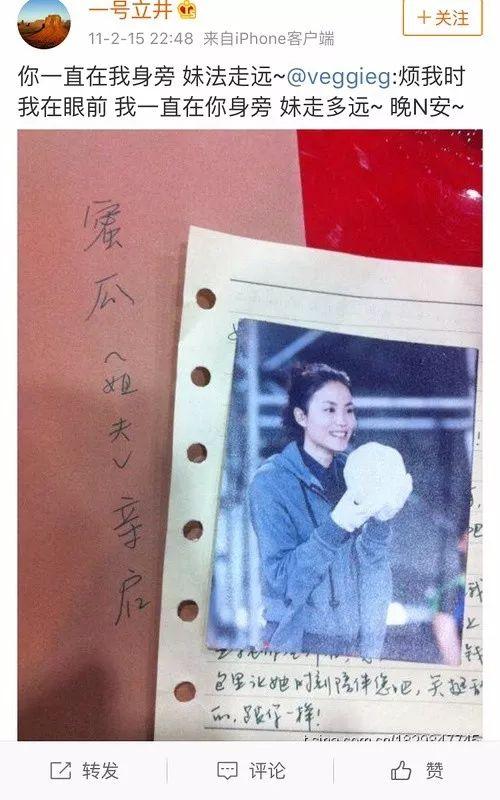 一号立井
+关注
11-2-15 22:48 来自iPhone客户端
你一直在我身旁 妹法走远~@veggieg:烦我时
我在眼前 我一直在你身旁 妹走多远~ 晚N安~
蜜瓜(姐夫)亲启
钱
包里让她时刻陪伴您吧,笑起来
而,跟你一样!
转发
评论
赞